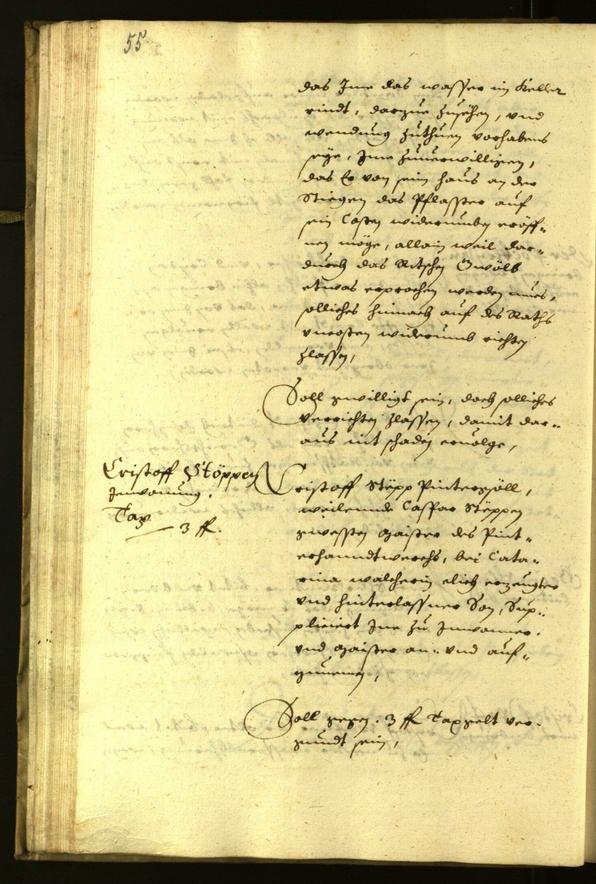 55
das Ime das wasser im Keller
rindt, darzue zusehen, und
wendung zuthuen vorhabens
seye, Ime zuuerwilligen,
das Er von sein haus an der
Stiegen das Pflasster auf
sein Cossten widerumben eröff-
nen möge, allain weil dar-
durch das Gwölb
etwas erprochen werden mues,
solliches hinnach auf des Raths
uncossten widerumb richten
zlassen,
Soll gwilligt sein, doch solliches
verrichten zlassen, damit dar-
aus nit schaden eruolge,
Cristoff Stöppen
Inwonung.
Tax
3 ff.
Cristoff Stöpp Pintergsöll,
weilennde Caspar Stöppen
gwessten Maister des Pint-
erhanndtwerchs, bei Cata-
rina elich erzeugter
und hinterlassner Son, Sup-
pliciert Ine zu Inwonner
und Maister an- und auf-
zunemen,
Soll gegen 3 ff Taxgelt ver-
gundt sein,